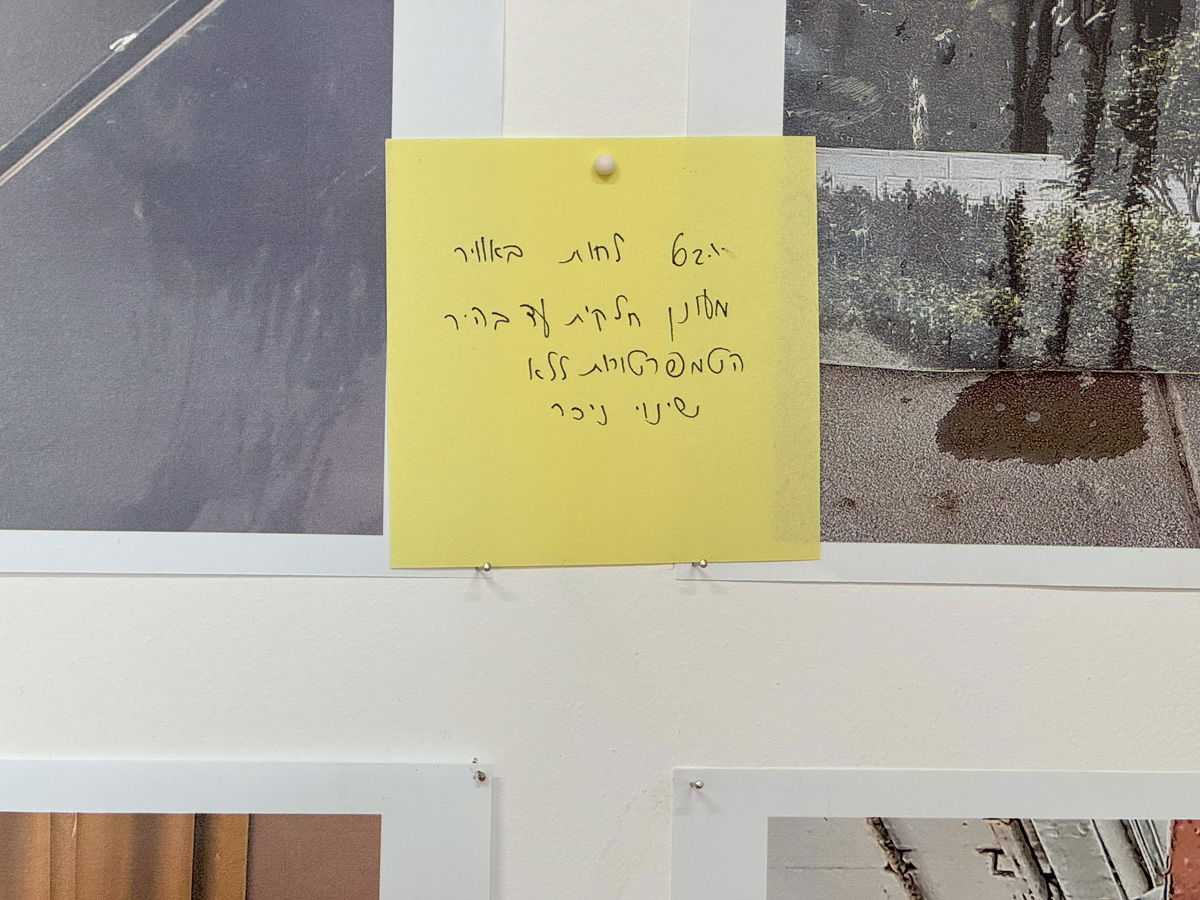 לחות באוויר
מעונן חלקית עד בהיר
הטמפרטורות ללא
שינוי ניכר